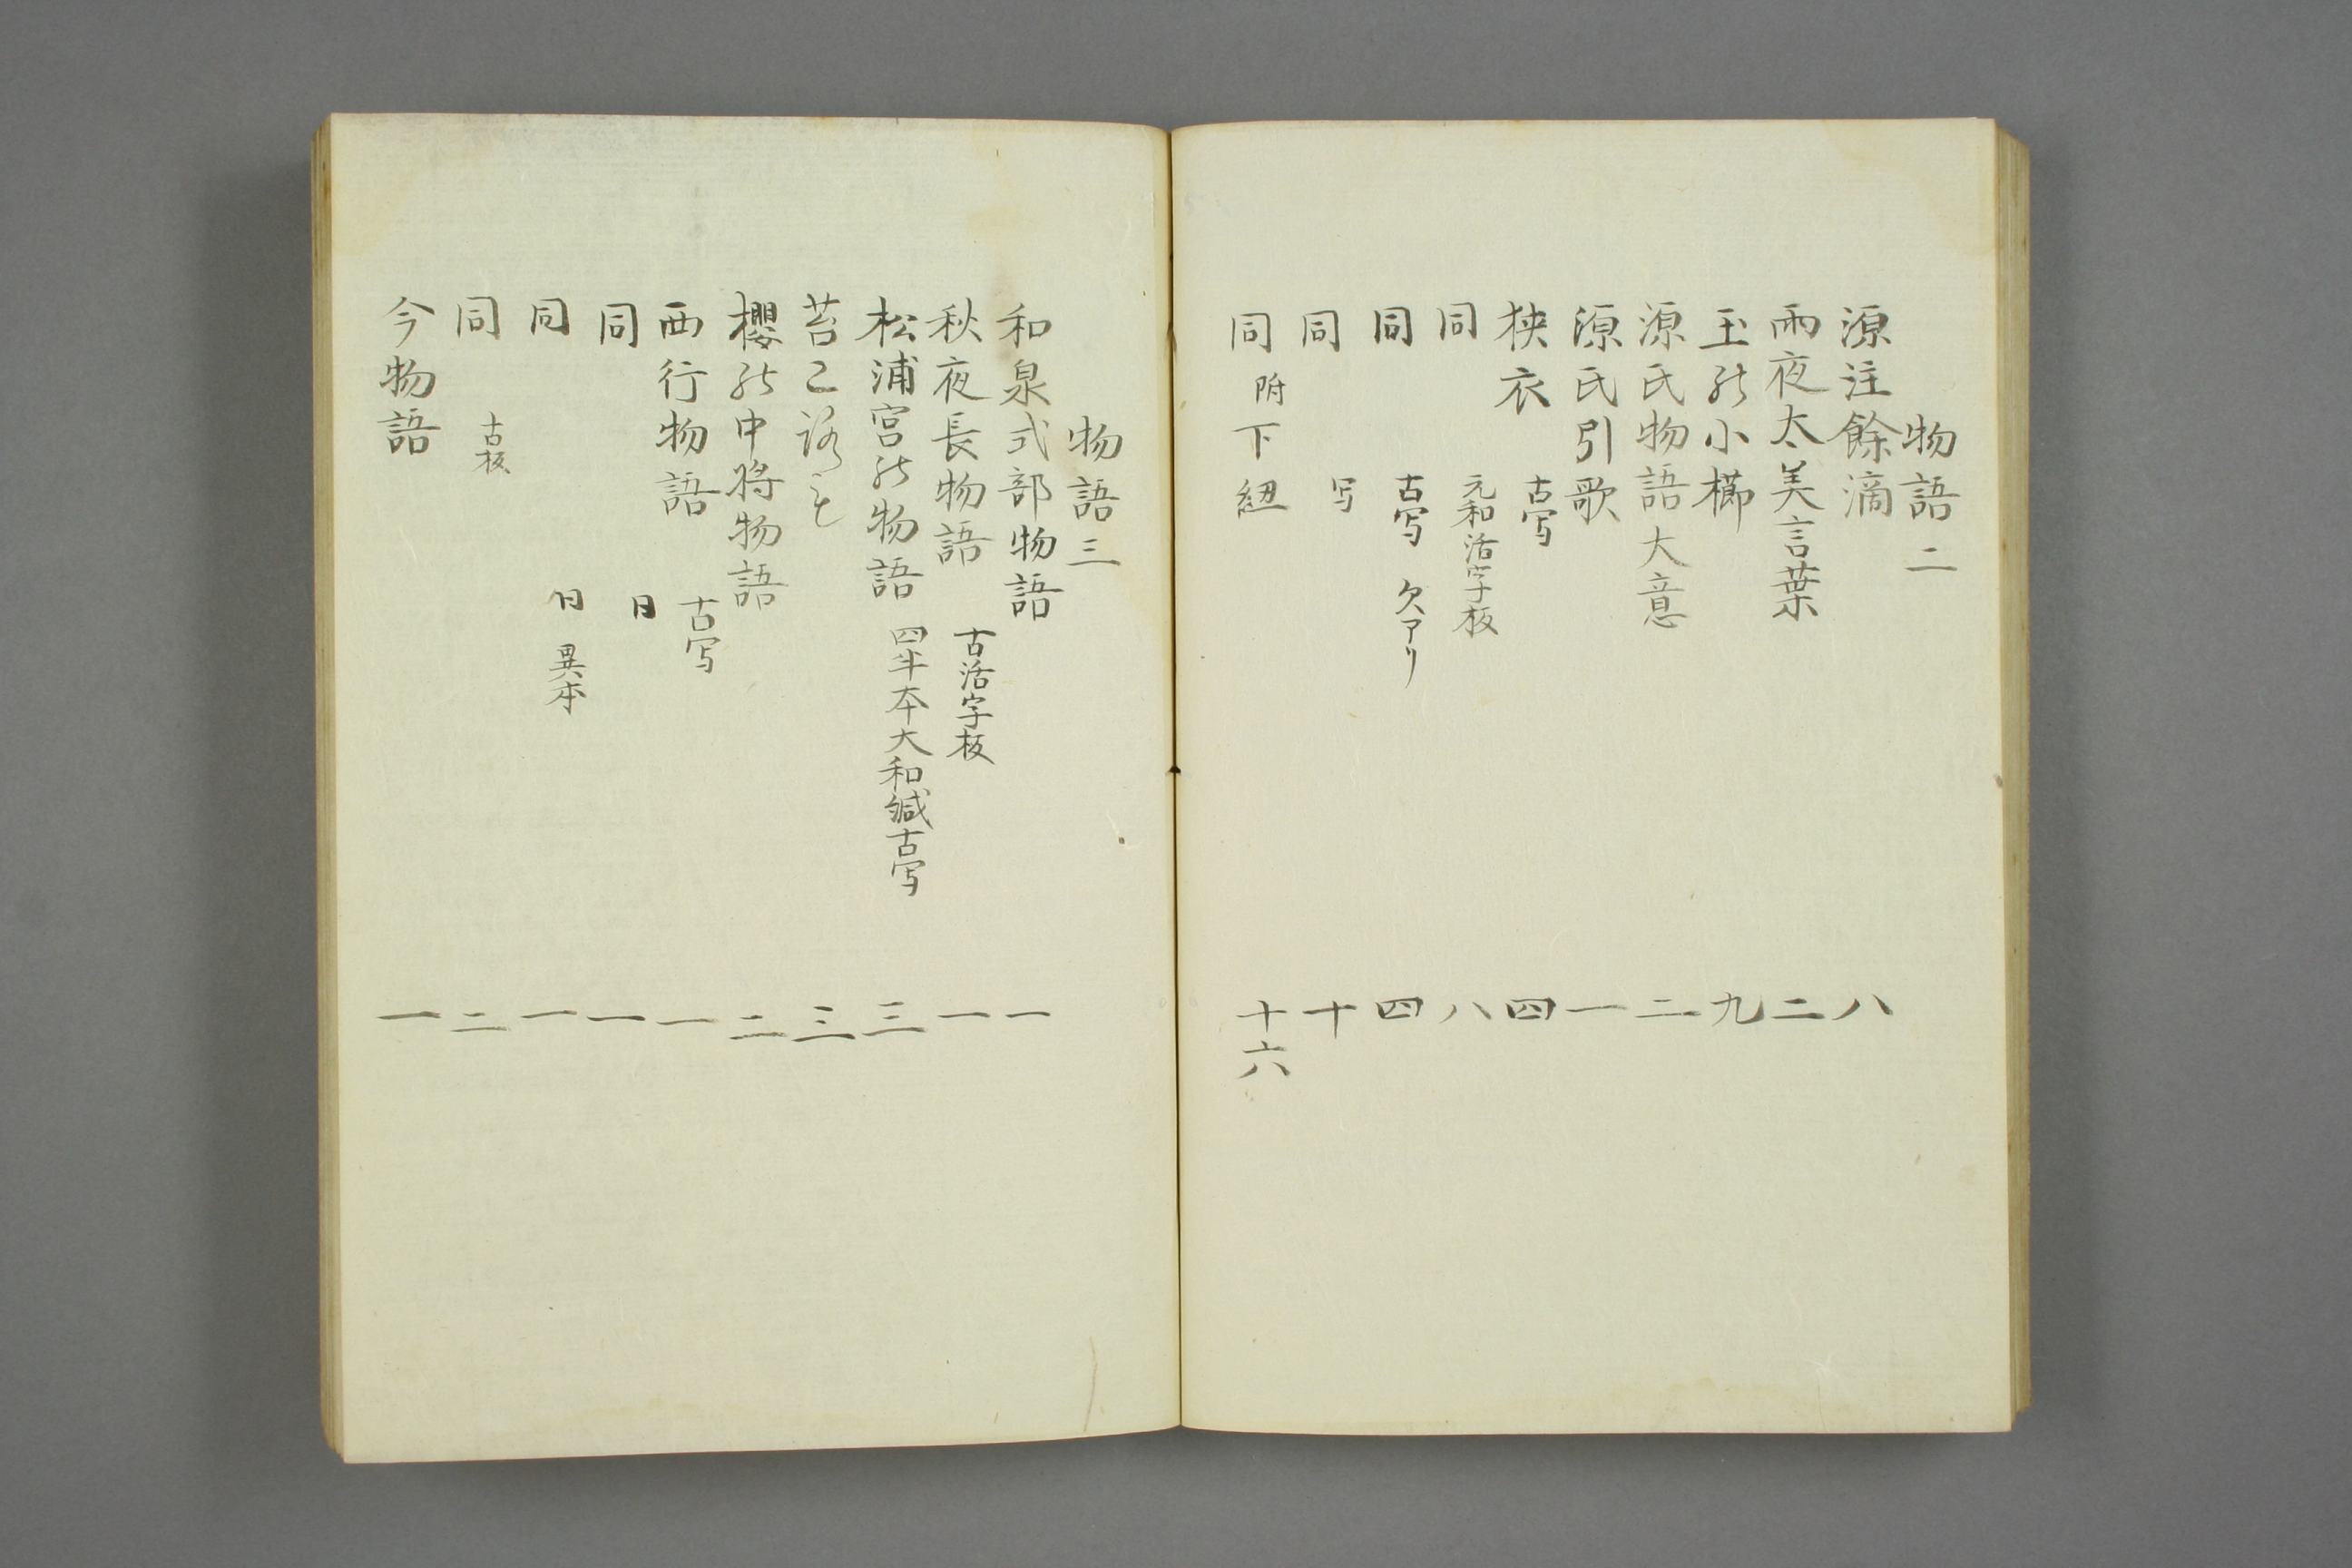 物語二
源注餘滴 八
雨夜太美言葉 二
玉能小櫛 九
源氏物語大意 二
源氏引歌 一
狭衣 古写 四
同 元和活字板 八
同 古写 欠アリ 四
同 写 十
同 附下紐 十六
物語三
和泉式部物語 一
秋夜長物語 古活字板 一
松浦宮能物語 四半本大和綴古写 三
苔乙路も 三
櫻能中将物語 二
西行物語 古写 一
同 日 一
同 日 異本 一
同 古板 二
今物語 一